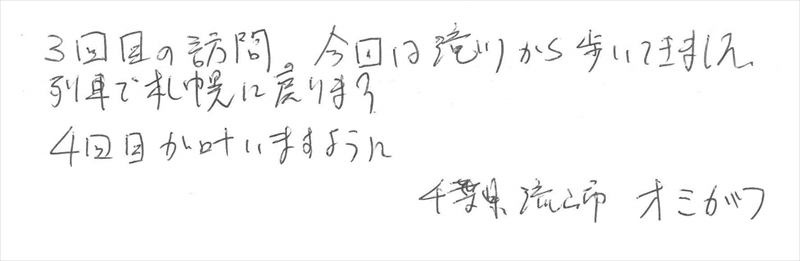 3回目の訪問。今回は滝川から歩いてきました。
列車で札幌に戻ります
4回目が叶いますように
千葉県流山市 オミがつ